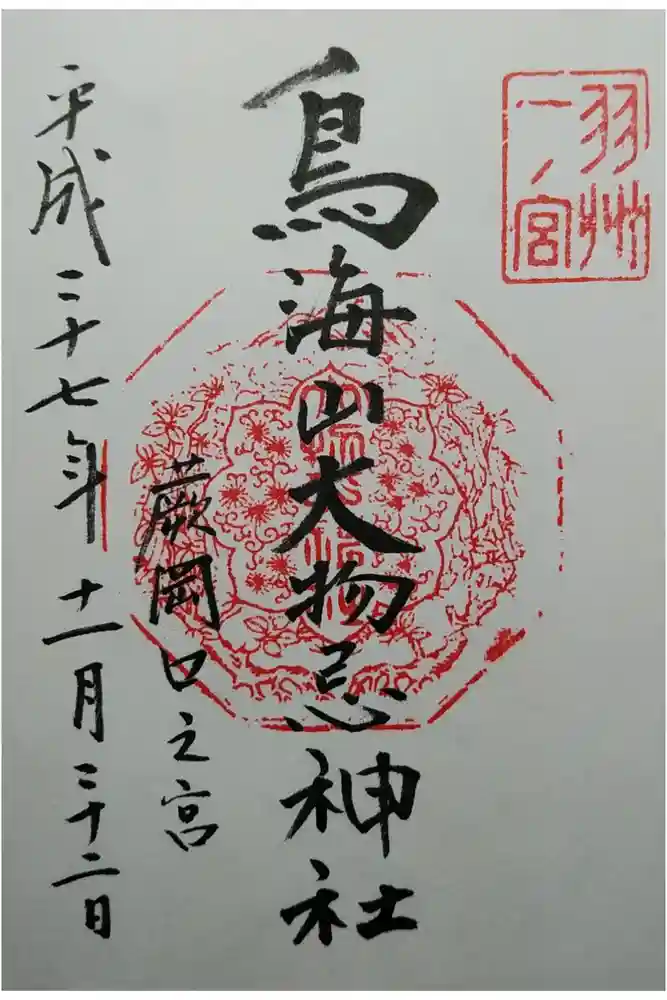 羽州
一ノ宮
鳥海山大物忌神社
蕨岡口之宮
平成二十七年十一月二十二日